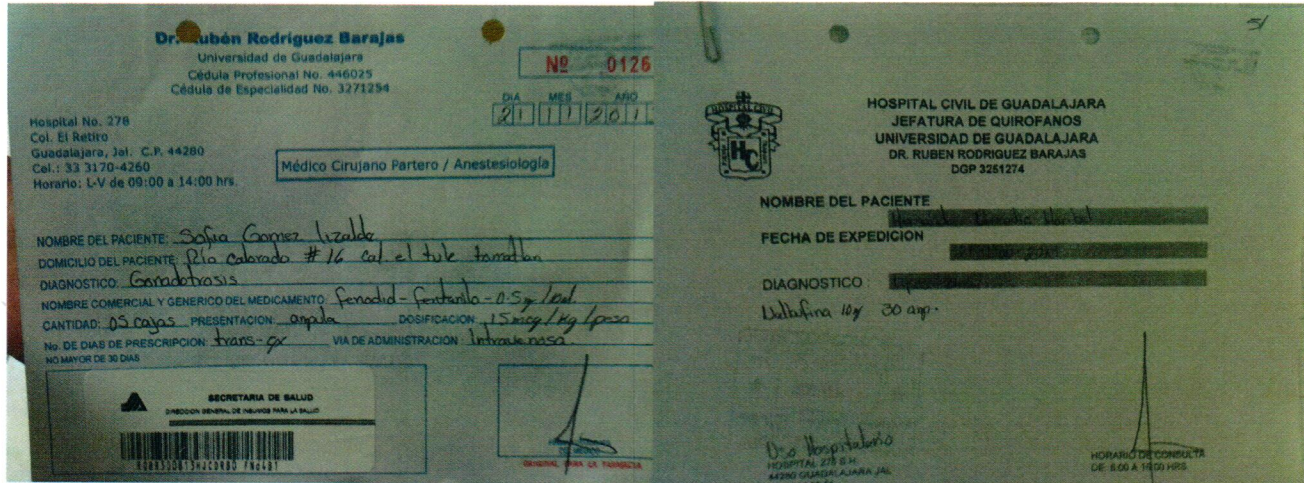 Dr. Rubén Rodríguez Barajas
Universidad de Guadalajara
Cédula Profesional No. 446025
Cédula de Especialidad No. 3271254
Nº 0126
DIA MES AÑO
21 11 201
Hospital No. 278
Col. El Retiro
Guadalajara, Jal. C.P. 44280
Cel.: 33 3170-4260
Horario: L-V de 09:00 a 14:00 hrs.
Médico Cirujano Partero / Anestesiología
NOMBRE DEL PACIENTE: Sofia Gomez lizalde
DOMICILIO DEL PACIENTE: Río Colorado # 16 Col el tule tomatlan
DIAGNOSTICO: Gonadotrosis
NOMBRE COMERCIAL Y GENERICO DEL MEDICAMENTO: fenodid - fentanilo - 0.5
CANTIDAD: 05 cajas PRESENTACION: ampula DOSIFICACION: 15 mcg / Kg / peso
No. DE DIAS DE PRESCRIPCION: trans-qx VIA DE ADMINISTRACION: Intravenosa.
NO MAYOR DE 30 DIAS
SECRETARIA DE SALUD
DIRECCION GENERAL DE INSUMOS PARA LA SALUD
51
HOSPITAL CIVIL
HC
HOSPITAL CIVIL DE GUADALAJARA
JEFATURA DE QUIROFANOS
UNIVERSIDAD DE GUADALAJARA
DR. RUBEN RODRIGUEZ BARAJAS
DGP 3251274
NOMBRE DEL PACIENTE
FECHA DE EXPEDICION
DIAGNOSTICO :
Nalbufina 10 30 amp.
Uso Hospitalario
HOSPITAL 278 S.H.
44280 GUADALAJARA JAL
HORARIO DE CONSULTA
DE 8:00 A 16:00 HRS